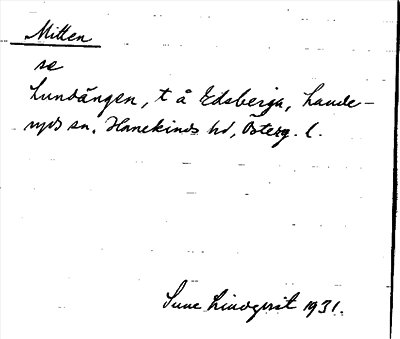 Mitten
se
Lundängen, t å Edsberga, Hande-
ryds sn. Hanekinds hd, Österg. l.
Sune Lindqvist 1931.